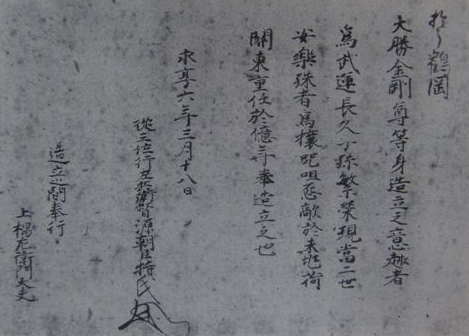 於鶴岡
大勝金剛尊等身造立之意趣者
為武運長久子孫繁榮現當二世
安樂殊者為攘呪咀怨敵於未兆荷
關東重任於億年奉造立之也
永享六年三月十八日
從三位行左兵衛督源朝臣持氏
造立之間奉行
上椙左衛門大夫